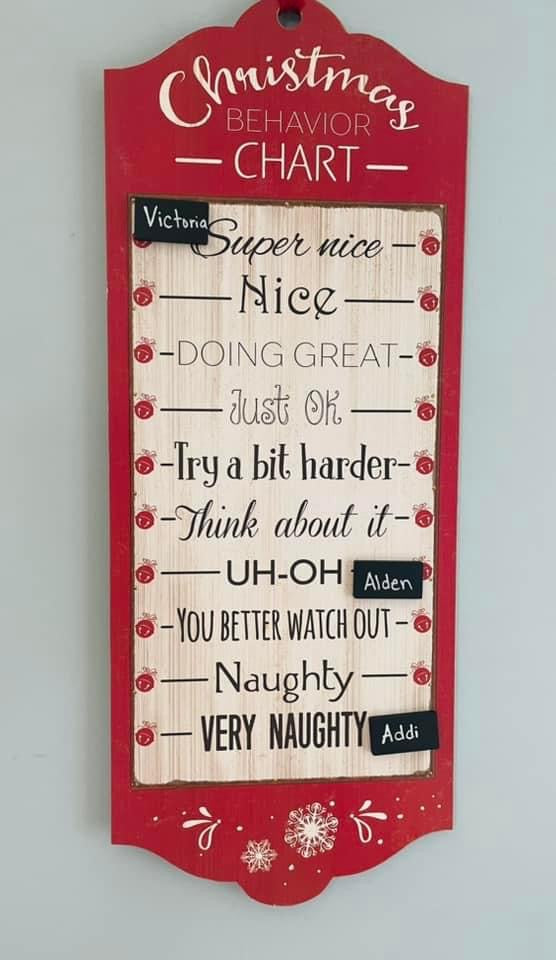 Christmas
BEHAVIOR
CHART
Victoria
Super nice
Nice
DOING GREAT
Just OK
Try a bit harder
Think about it
UH-OH
Alden
YOU BETTER WATCH OUT
Naughty
VERY NAUGHTY
Addi